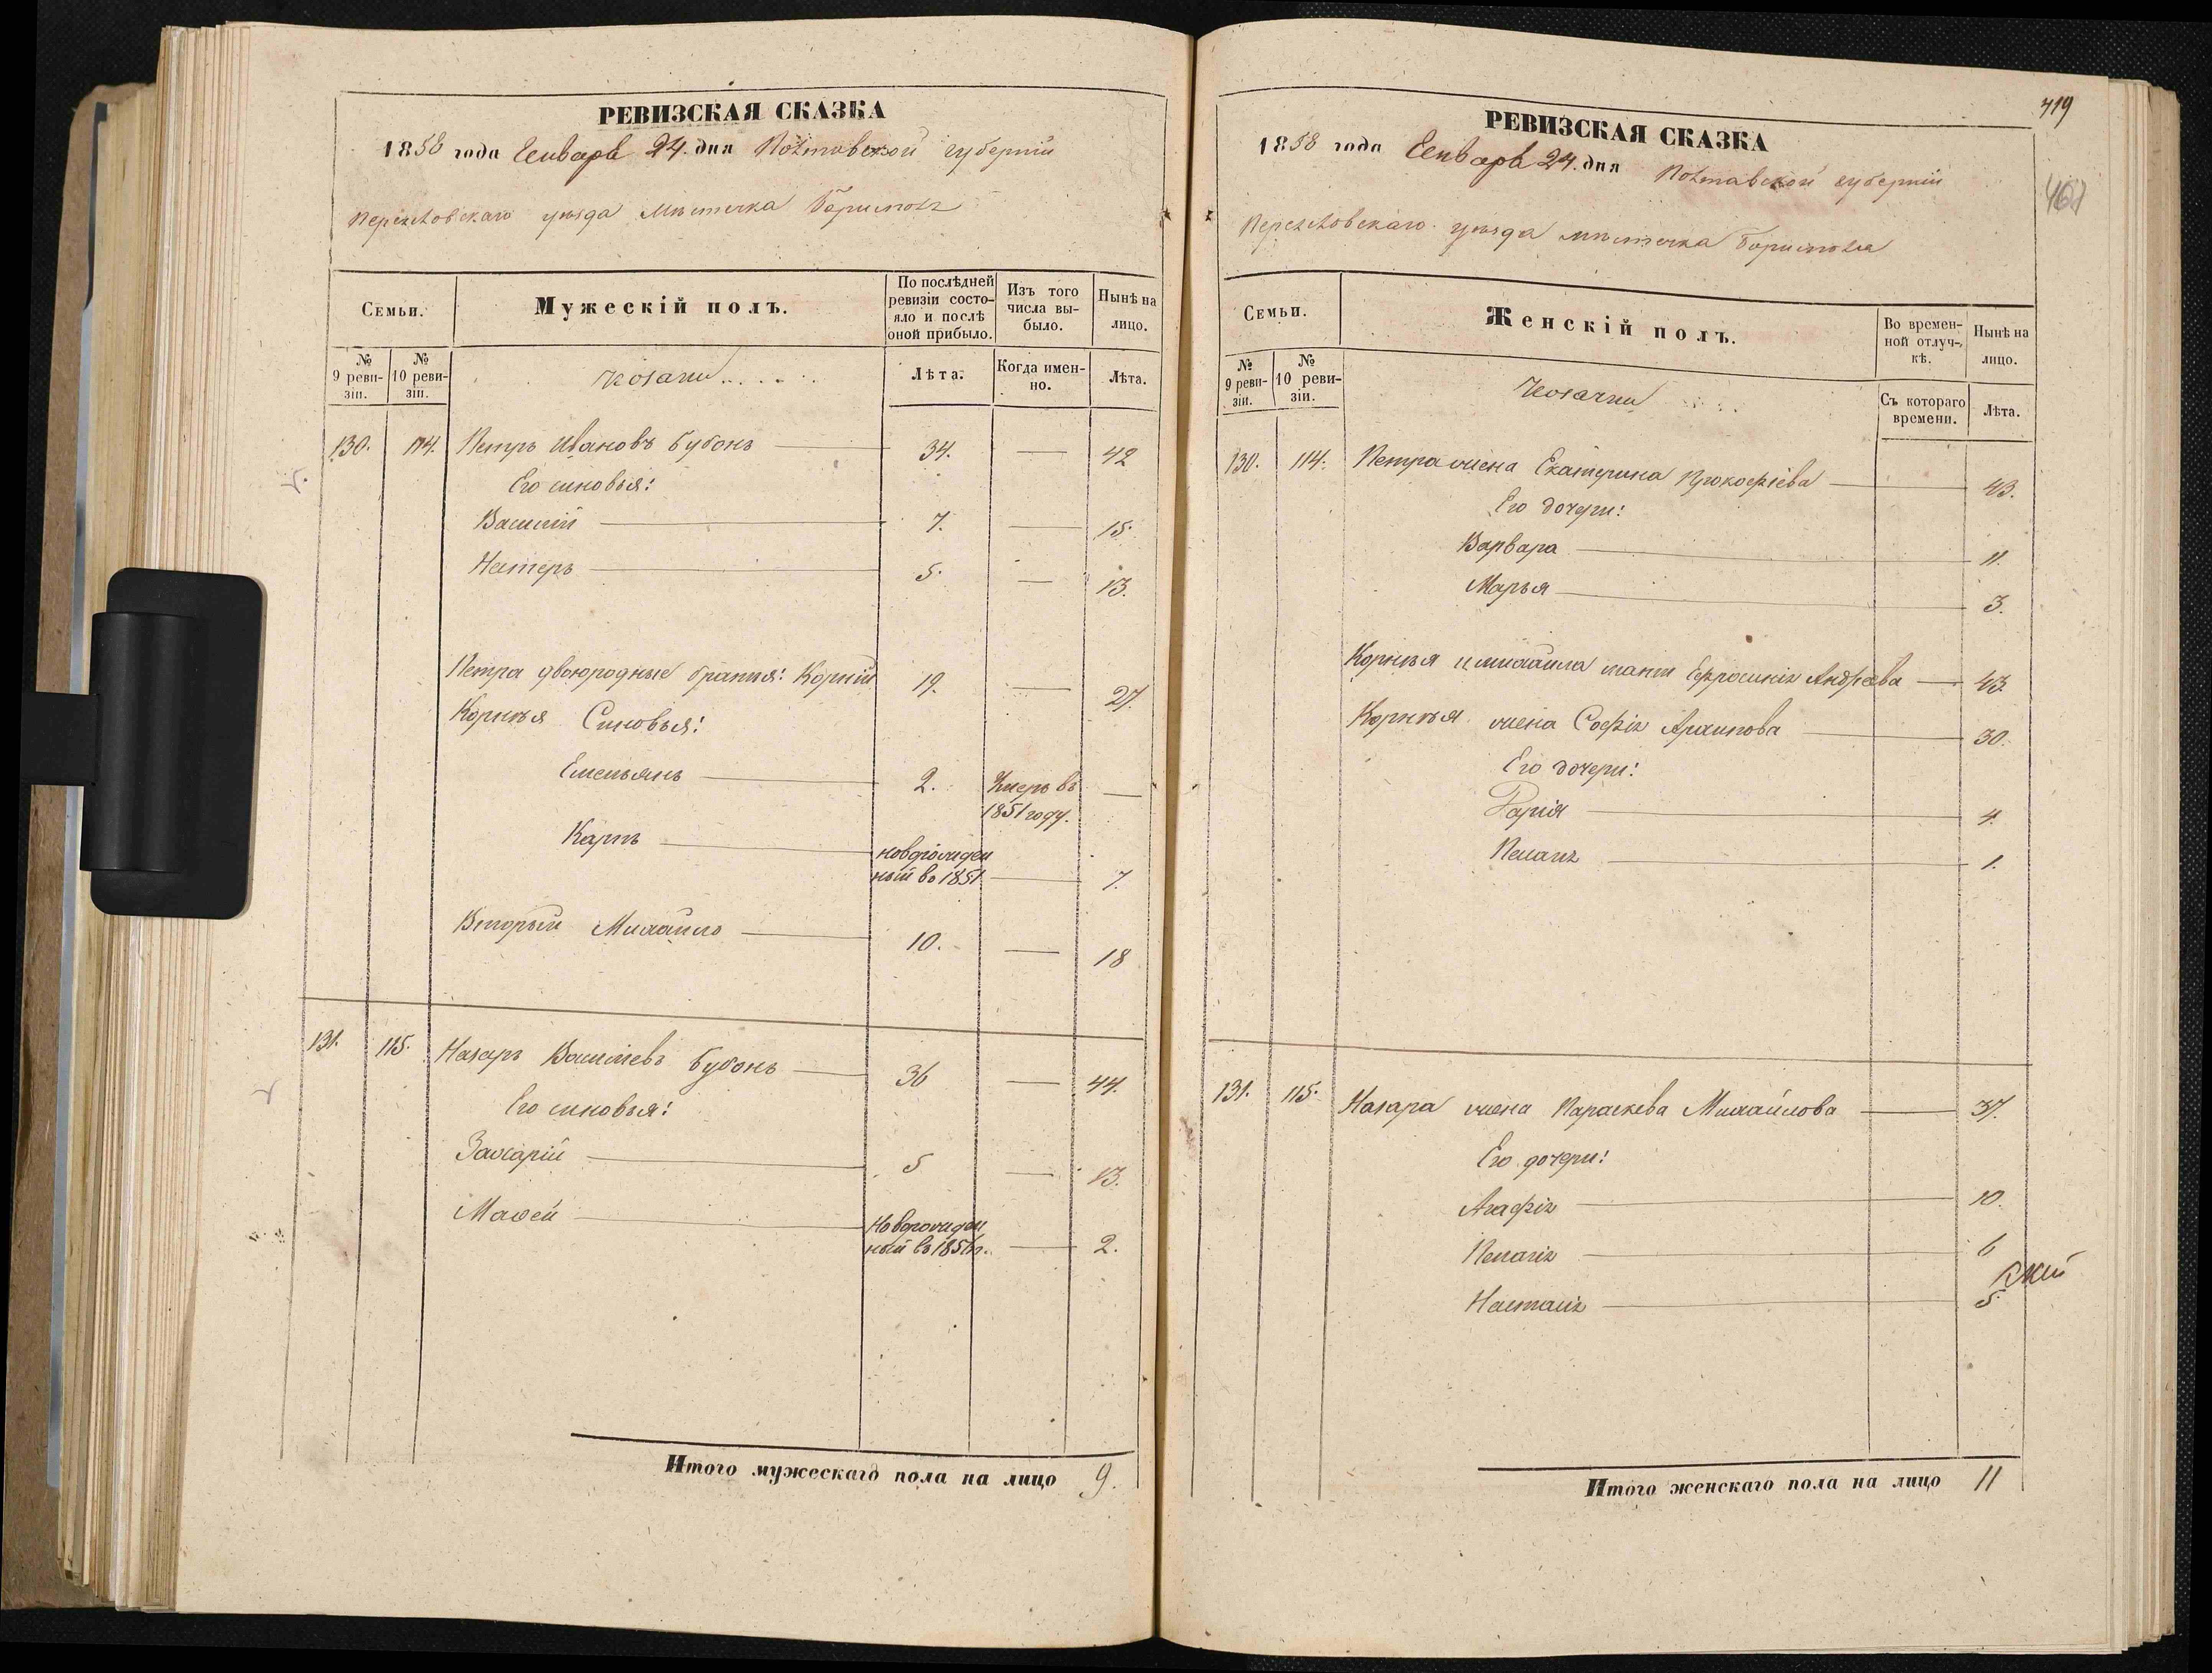 РЕВИЗСКАЯ СКАЗКА
1858 года Генваря 24. дня Полтавской губерніи
Переяловскаго уѣзда Мѣстечка Борисполя
Семьи.
Мужескій полъ.
По послѣдней ревизіи состояло и послѣ оной прибыло.
Изъ того числа выбыло.
Нынѣ на лицо.
№ 9 ревизіи.
№ 10 ревизіи.
Козаки
Лѣта.
Когда именно.
Лѣта.
130. 114. Петръ Ивановъ Бубонъ 34. — 42
Его синовья:
Василій 7. — 15.
Нестеръ 5. — 13.
Петра двоюродные братья: Корній 19. — 27.
Корнѣя Синовья:
Емельянъ 2. Умеръ въ 1851 году. —
Карпъ новорожденный въ 1851 — 7.
Вторый Михайло 10. — 18
131. 115. Назаръ Васильевъ Бубонъ 36 — 44.
Его синовья:
Захарій 5 — 13.
Мавей Новорожденный въ 1856 г. — 2.
Итого мужескаго пола на лицо 9.
419
РЕВИЗСКАЯ СКАЗКА
1858 года Генваря 24. дня Полтавской губерніи
Переяловскаго уѣзда мѣстечка Борисполя
Семьи.
Женскій полъ.
Во временной отлучкѣ.
Нынѣ на лицо.
№ 9 ревизіи.
№ 10 ревизіи.
Козачки
Съ котораго времени.
Лѣта.
130. 114. Петра жена Екатерина Прокофіева 43.
Его дочери:
Варвара 11.
Марья 3.
Корнѣя и михайла мать Ефросинія Андреева 43.
Корнѣя жена Софія Архипова 30.
Его дочери:
Дарія 4.
Пелагія 1.
131. 115. Назара жена Параскева Михайлова 37.
Его дочери:
Агафія 10.
Пелагія 6
Настасія 5.
Итого женскаго пола на лицо 11